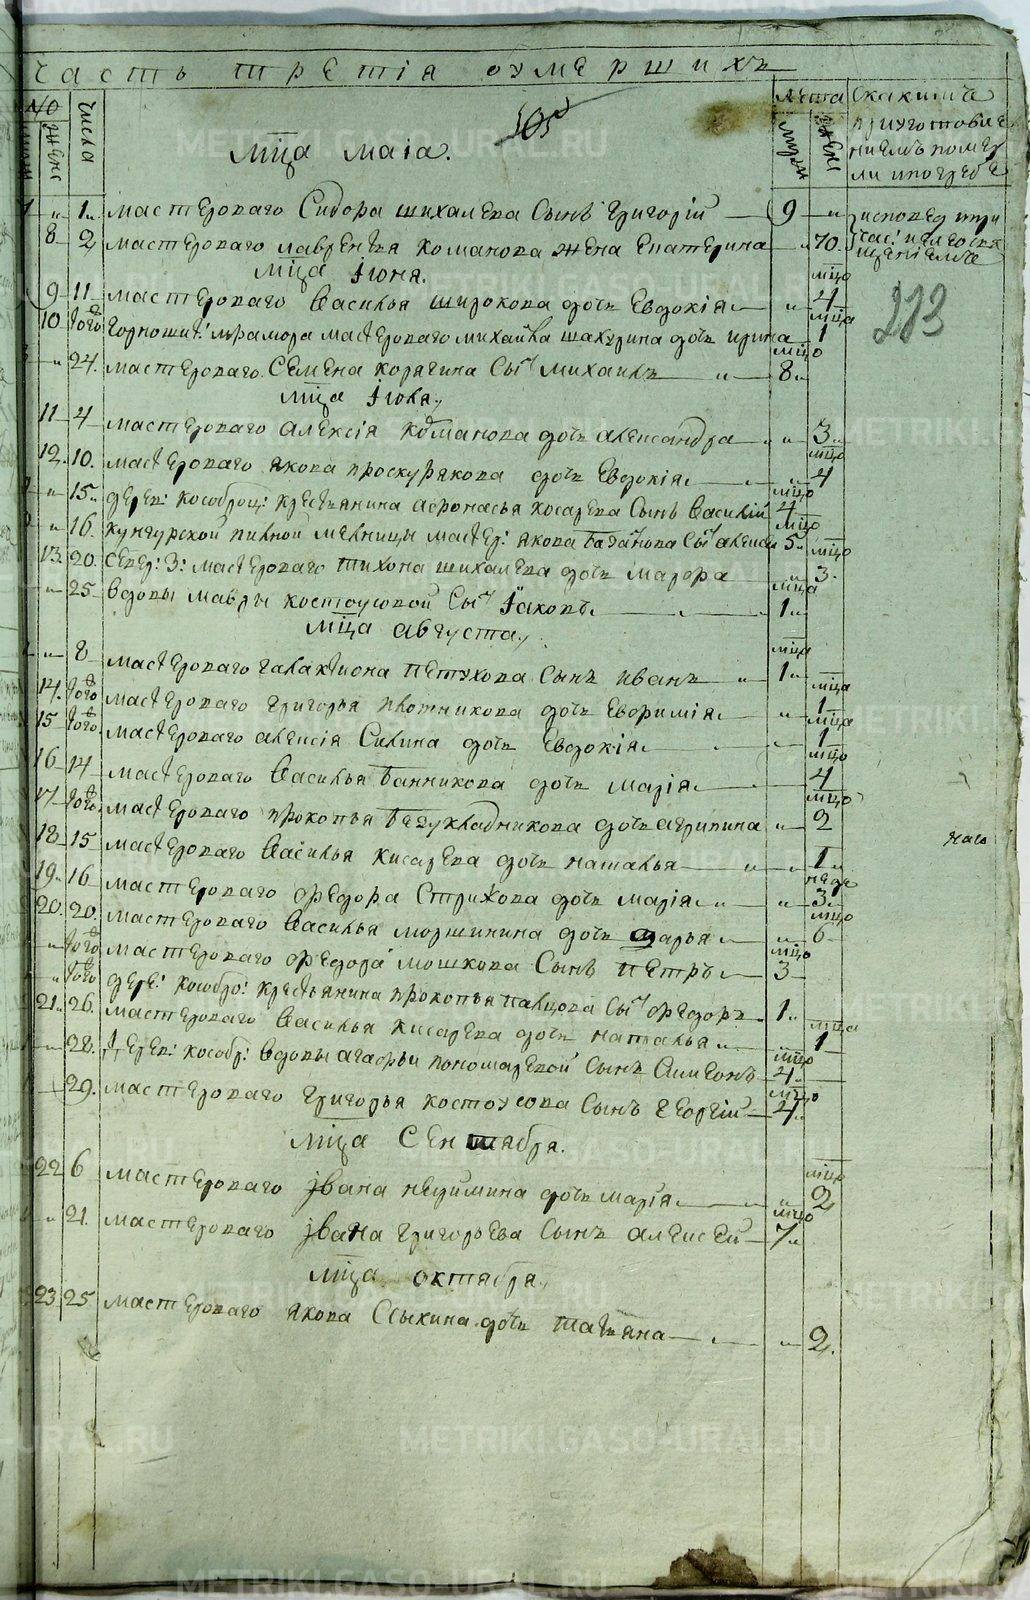 часть третiя оумершихъ
№ числа лета Скакимъ
женс мужес женс приуготовле
505 нiемъ помер
мца маiа. ли и погребе
1. мастероваго Сидора шихалева Сынъ григорiй 9 исповед: при
8 2 мастероваго лаврентья команова жена Екатерина 70.
мца iюня. мцо
9 11 мастероваго Василья широкова дочь Евдокiя 4
283
мца
10. того горношит: мрамора мастероваго михайла шакурина дочь ирина 1
мцо
24. мастероваго Семена корягина Сынъ михаилъ 8
мца iюля.
11 4 мастероваго алексiя команова дочь александра 3
мцо
12. 10. мастероваго якова проскурякова дочь Евдокiя 4
мцо
15 дерев: кособрод: крестьянина афонасья косарева Сынъ Василiй 4
мцо
16. кунгурской пилной мелницы мастер: якова Сынъ алексей 5
мцо
13. 20. Север: З: мастероваго тихона шихалева дочь марфа 3.
мца
25 вдовы мавры костоусовой Сынъ Iаковъ 1
мца августа.
мца
8 мастероваго галактиона петухова Сынъ иванъ 1
мца
14. того мастероваго григорья плотникова дочь Евфимiя 1
мца
15 того мастероваго алексiя Силина дочь Евдокiя 1
мцо
16 14 мастероваго Василья банникова дочь марiя 4
мцо
17. того. мастероваго прокопья безукладникова дочь агрипина 2
18 15 мастероваго Васiлья кисарева дочь наталья 1
неде
19. 16 мастероваго федора Стрижова дочь марiя 3
мцо
20. 20. мастероваго Василья моршинина дочь дарья 6
мцо
того мастероваго федора мошкова Сынъ петръ 3
того дере: кособро: крестьянина прокопья пальцова Сынъ федоръ 1
мца
21. 26. мастероваго Василья кисарева дочь наталья 1
мцо
28. дерев: кособр: вдовы агафьи пономаревой Сынъ Симеонъ 4
мцо
29. мастероваго григорья костоусова Сынъ георгiй 4
мца Сентября.
мцо
22 6 мастероваго iвана неуимина дочь марiя 2
мцо
21. мастероваго iвана григорьева Сынъ алексей 7
мца октября.
23 25 мастероваго якова Сыкина дочь татьяна 2.